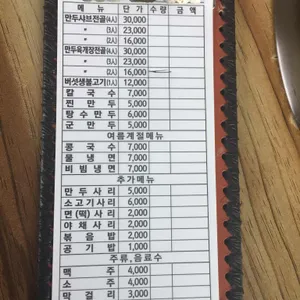 메 뉴 단 가 수량 금 액
만두샤브전골(4人) 30,000
〃 (3人) 23,000
〃 (2人) 16,000
만두육개장전골(4人) 30,000
〃 (3人) 23,000
〃 (2人) 16,000
버섯생불고기(1人) 12,000
칼 국 수 7,000
찐 만 두 5,000
탕 수 만 두 6,000
군 만 두 5,000
여름계절메뉴
콩 국 수 7,000
물 냉 면 7,000
비 빔 냉 면 7,000
추가메뉴
만 두 사 리 5,000
소고기사리 6,000
면(떡)사리 2,000
야 채 사 리 2,000
볶 음 밥 2,000
공 기 밥 1,000
주류,음료수
맥 주 4,000
소 주 4,000
막 걸 리 3,000